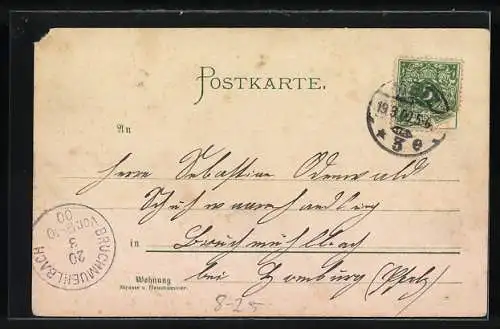 POSTKARTE.
19.3.00.5-6
* 3 e
An
Herrn Sebastian Odenwald
Schuhwaarenhandlung
in Bruchmühlbach
bei Homburg (Pfalz)
Wohnung
Strasse u. Hausnummer.
BRUCHMUEHLBACH
20
3
00
8-25